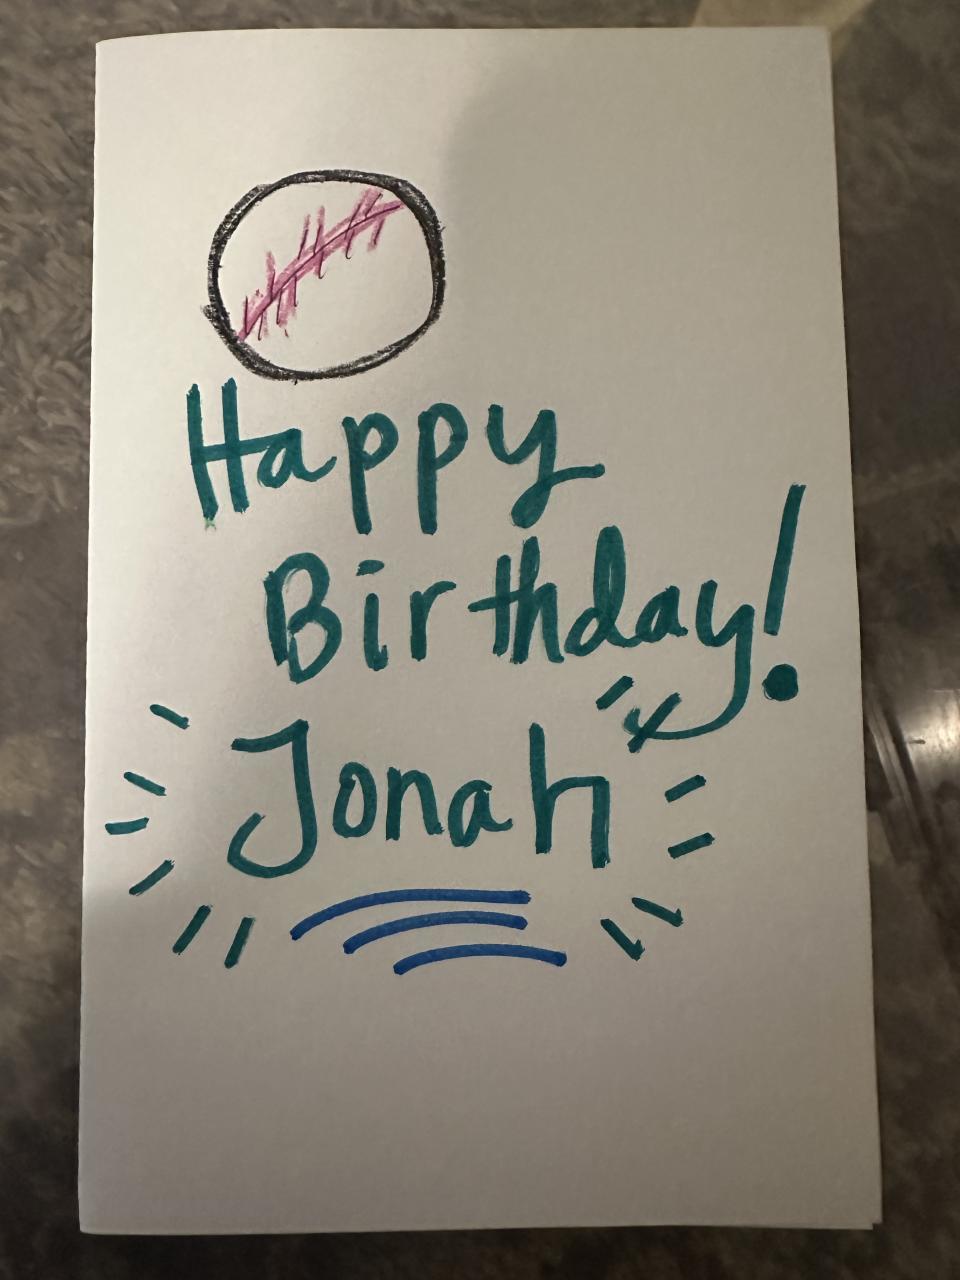 Happy
Birthday!
Jonah